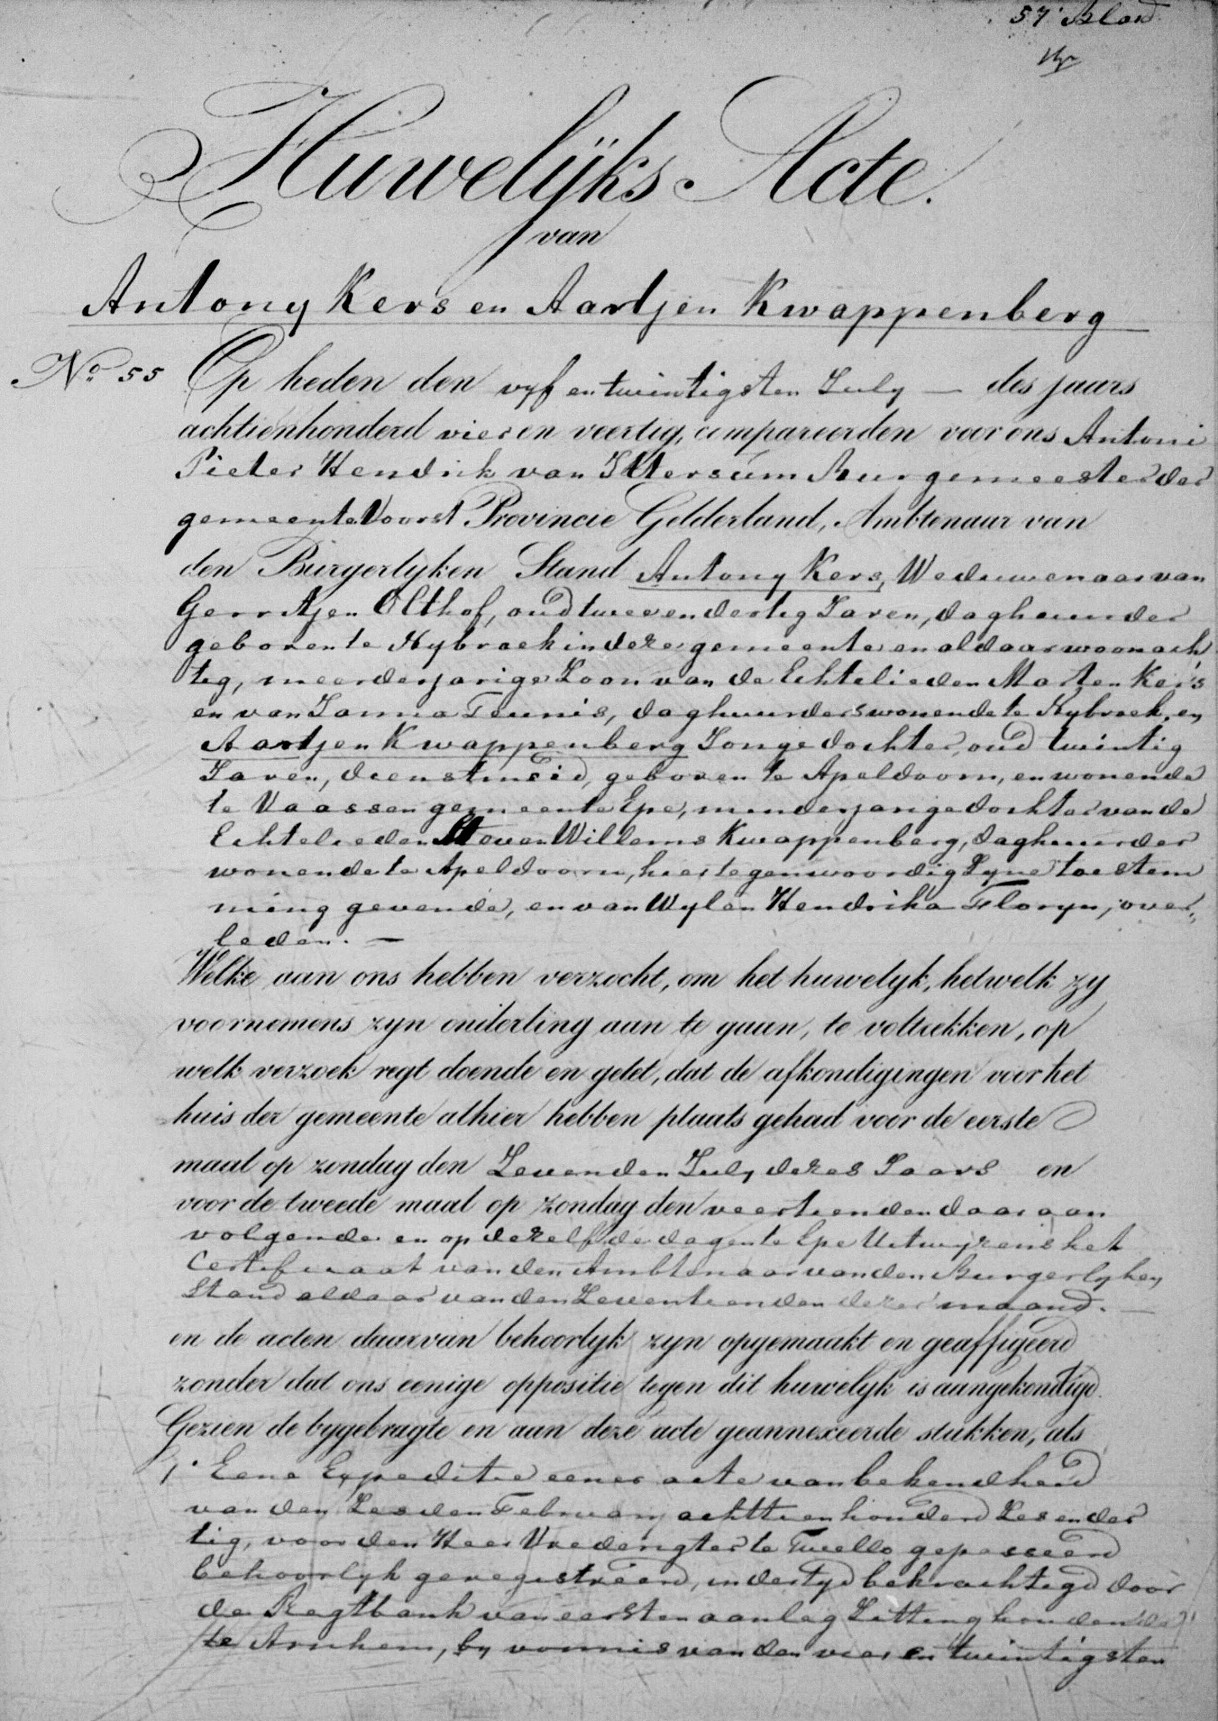 57e Blad
Huwelijks Acte.
van
Antony Kers en Aartjen Kwappenberg
No. 55 Op heden den vyf en twintigsten July — des jaars
achtienhonderd vier en veertig, compareerden voor ons Antoni
Pieter Hendrik van Ittersum Burgemeester der
gemeente Voorst Provincie Gelderland, Ambtenaar van
den Burgerlyken Stand Antony Kers, Weduwenaar van
Gerritjen Olthof, oud twee en dertig Jaren, daghuurder
geboren te Nybroek in deze gemeente en aldaar woonach
tig, meerderjarige Zoon van de Echtelieden Marten Kers
en van Janna Teunis, daghuurders wonende te Nybroek, en
Aartjen Kwappenberg Jonge dochter, oud twintig
Jaren, dienstmeid, geboren te Apeldoorn, en wonende
te Vaassen gemeente Epe, minderjarige dochter van de
Echtelieden Steven Willems Kwappenberg, daghuurder
wonende te Apeldoorn, hier tegenwoordig Zyne toestem
ming gevende, en van Wylen Hendrika Floryn, over,
leden. —
Welke aan ons hebben verzocht, om het huwelyk, hetwelk zy
voornemens zyn onderling aan te gaan, te voltrekken, op
welk verzoek regt doende en gelet, dat de afkondigingen voor het
huis der gemeente alhier hebben plaats gehad voor de eerste
maal op zondag den Zevenden July dezes Jaars en
voor de tweede maal op zondag den veertienden daaraan
volgende en op dezelfde dagen te Epe Uitwyzens het
Certificaat van den Ambtenaar van den Burgerlyken
Stand aldaar van den Zeventienden dezer maand. —
en de acten daarvan behoorlyk zyn opgemaakt en geaffigeerd
zonder dat ons eenige oppositie tegen dit huwelyk is aangekondigd.
Gezien de bygebragte en aan deze acte geannexeerde stukken, als
1e Eene Expeditie eener acte van bekendheid
van den Zesden February achttienhonderd Zes en der
tig, voor den Heer Vrederegter te Twello gepasseerd
behoorlyk geregistreerd, indertyd bekrachtigd door
de Regtbank van eersten aanleg Zitting houdende
te Arnhem, by vonnis van den vier en twintigsten